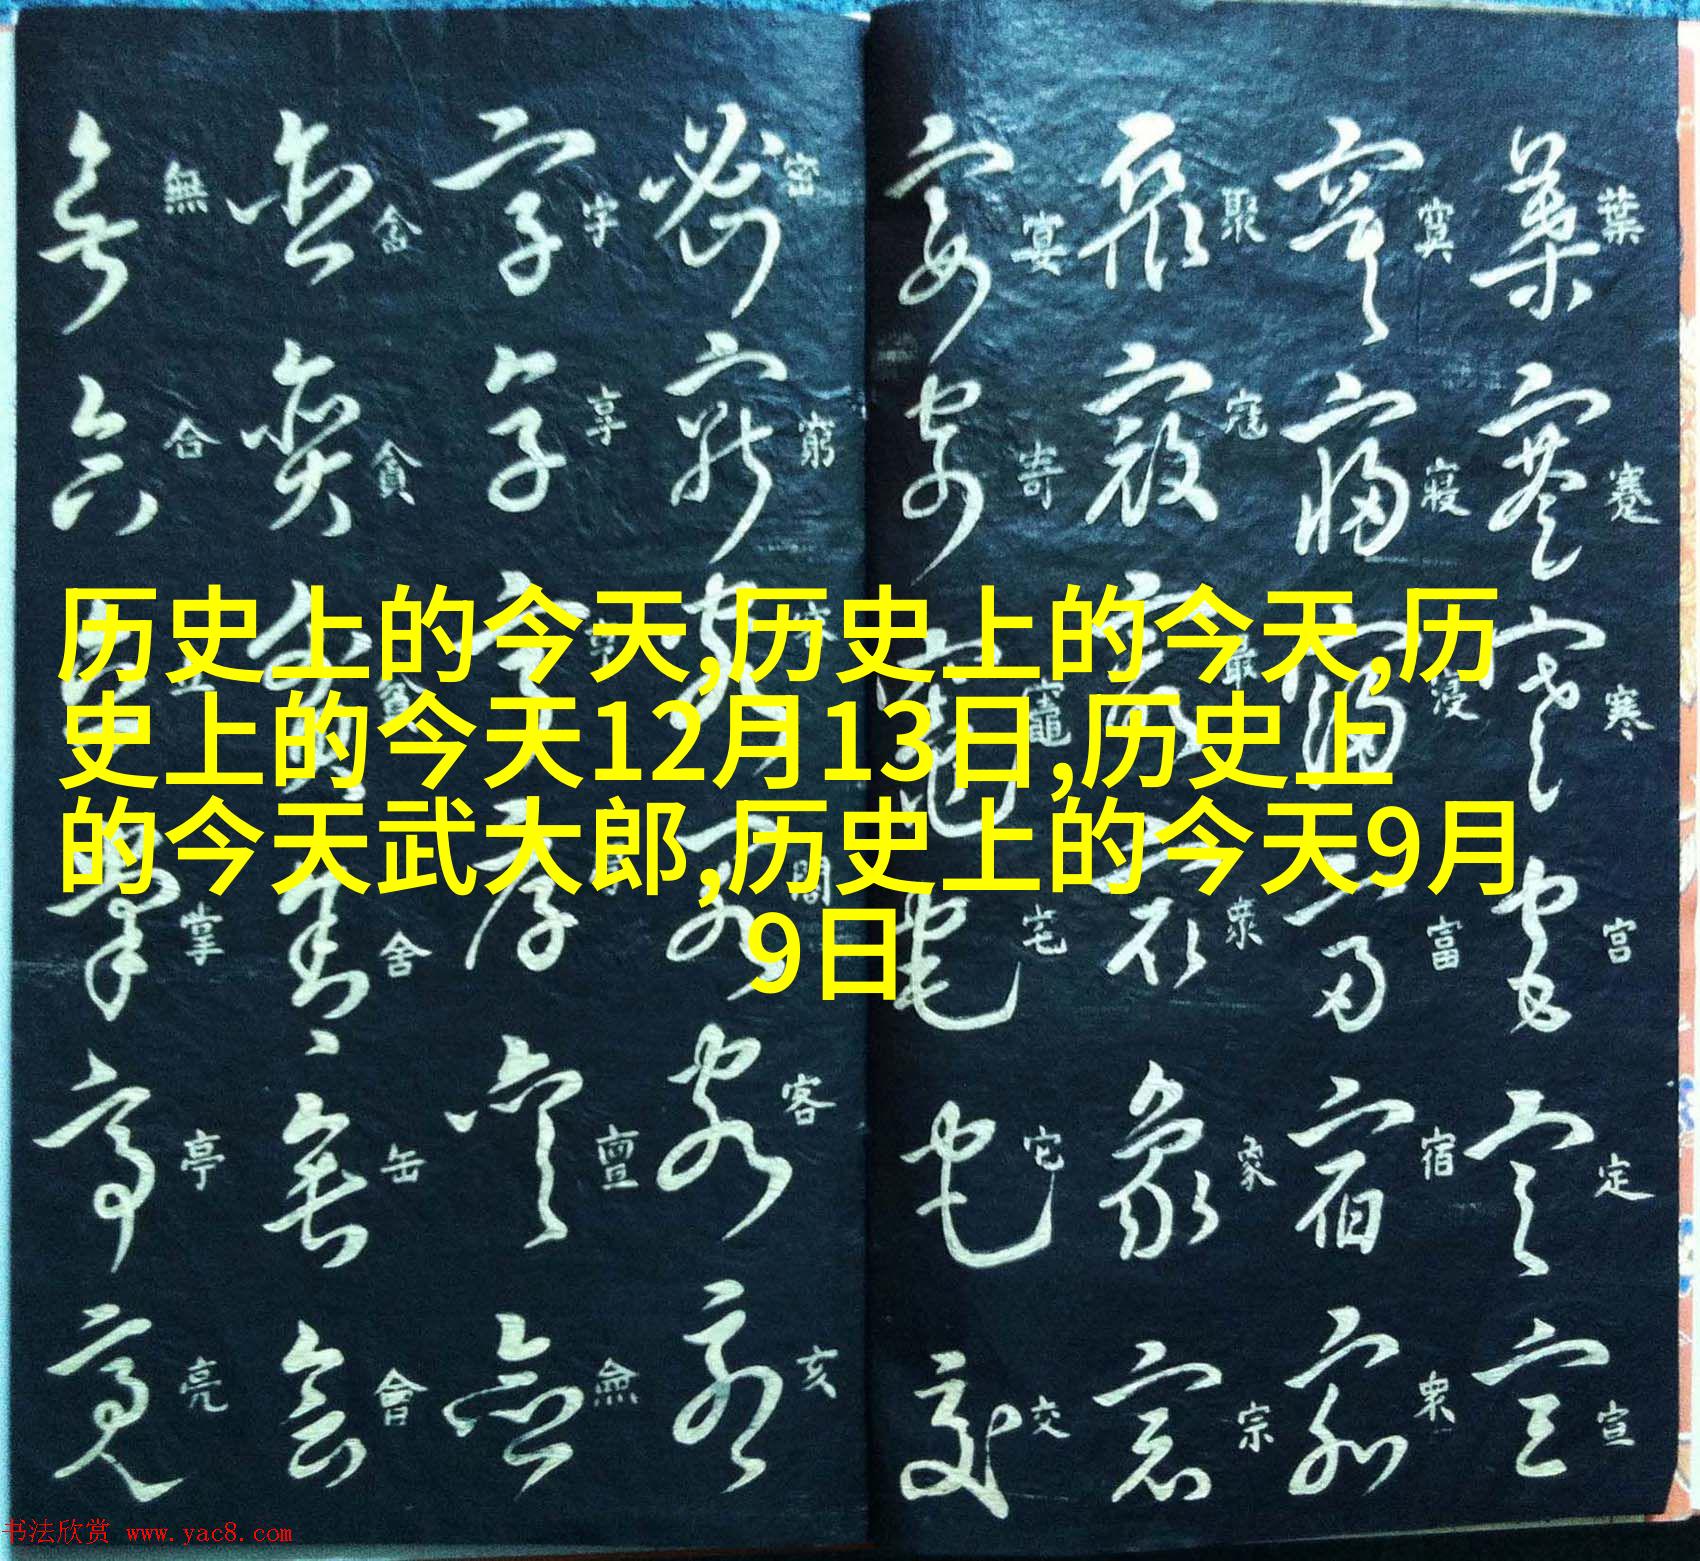 历史上的今天,历史上的今天,历
史上的今天12月13日,历史上
的今天武大郎,历史上的今天9月
9日
葉蹇寒宫定宣
寞寢富宿
聚寇最衆家宗
宴寄竈宅它交
密窮客亥
字享亶
貪舍缶會
無合掌亭亮
书法欣赏 www.yac8.com